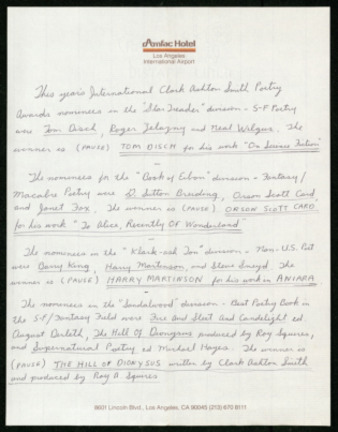 Amfac Hotel
Los Angeles
International Airport
This year's International Clark Ashton Smith Poetry
Awards nominees in the "Star Treader" division - S-F Poetry
were Tom Disch, Roger Zelazny and Neal Wilgus. The
winner is (PAUSE) TOM DISCH for his work "On Science Fiction"
The nominees for the "Book of Eibon" division - Fantasy/
Macabre Poetry were D. Sutton Breiding, Orson Scott Card,
and Janet Fox. The winner is (PAUSE) ORSON SCOTT CARD
for his work "To Alice, Recently Of Wonderland"
The nominees in the "Klark-ash Ton" division - Non-U.S. Poet
were Barry King, Harry Martinson, and Steve Sneyd. The
winner is (PAUSE) HARRY MARTINSON for his work on ANIARA
The nominees in the "Sandalwood" division - Best Poetry Book in
the S-F/Fantasy Field were Fire and Sleet and Candlelight ed
August Derleth, The Hill Of Dionysus produced by Roy Squires,
and Supernatural Poetry ed Michael Hayes. The winner is
(PAUSE) THE HILL OF DIONYSUS written by Clark Ashton Smith
and produced by Roy A Squires
8601 Lincoln Blvd., Los Angeles, CA 90045 (213) 670 8111